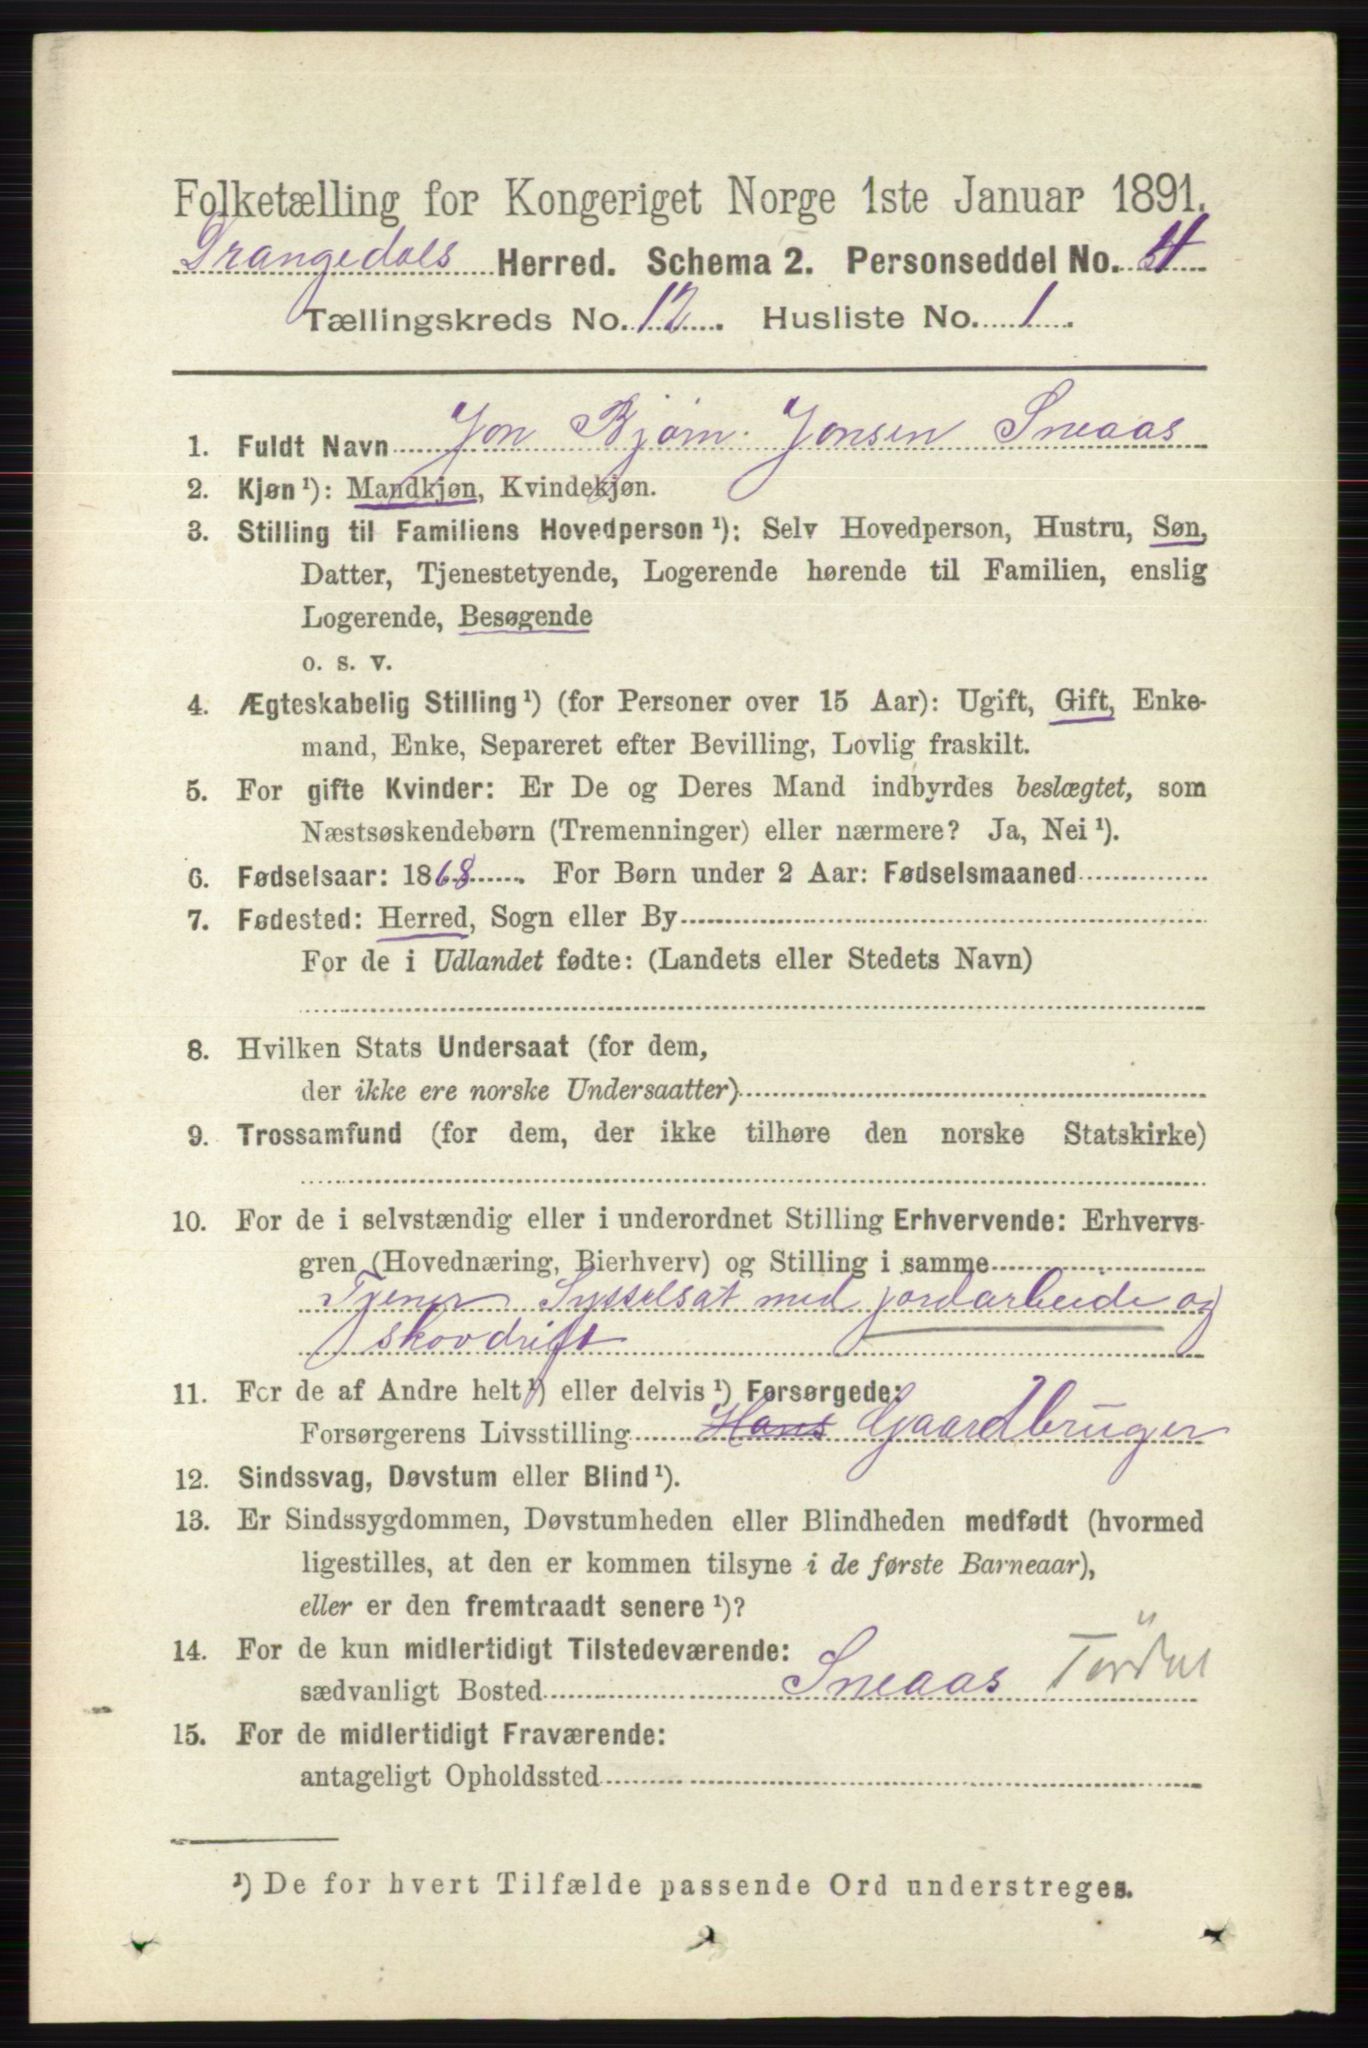 Folketælling for Kongeriget Norge 1ste Januar 1891.
Drangedals Herred. Schema 2. Personseddel No.
Tællingskreds No. 12. Husliste No. 1.
1. Fuldt Navn Jon Bjørn Jonsen Sneaas
2. Kjøn¹): Mandkjøn, Kvindekjøn.
3. Stilling til Familiens Hovedperson¹): Selv Hovedperson, Hustru, Søn,
Datter, Tjenestetyende, Logerende hørende til Familien, enslig
Logerende, Besøgende
o. s. v.
4. Ægteskabelig Stilling¹) (for Personer over 15 Aar): Ugift, Gift, Enke-
mand, Enke, Separeret efter Bevilling, Lovlig fraskilt.
5. For gifte Kvinder: Er De og Deres Mand indbyrdes beslægtet, som
Næstsøskendebørn (Tremenninger) eller nærmere? Ja, Nei¹).
6. Fødselsaar: 1868. For Børn under 2 Aar: Fødselsmaaned
7. Fødested: Herred, Sogn eller By
For de i Udlandet fødte: (Landets eller Stedets Navn)
8. Hvilken Stats Undersaat (for dem,
der ikke ere norske Undersaatter)
9. Trossamfund (for dem, der ikke tilhøre den norske Statskirke)
10. For de i selvstændig eller i underordnet Stilling Erhvervende: Erhvervs-
gren (Hovednæring, Bierhverv) og Stilling i samme
Tjener Sysselsat med jordarbeide og
skovdrift
11. For de af Andre helt¹) eller delvis¹) Forsørgede:
Forsørgerens Livsstilling Hans Gaardbruger
12. Sindssvag, Døvstum eller Blind¹).
13. Er Sindssygdommen, Døvstumheden eller Blindheden medfødt (hvormed
ligestilles, at den er kommen tilsyne i de første Barneaar),
eller er den fremtraadt senere¹)?
14. For de kun midlertidigt Tilstedeværende:
sædvanligt Bosted Sneaas Tördal
15. For de midlertidigt Fraværende:
antageligt Opholdssted
¹) De for hvert Tilfælde passende Ord understreges.